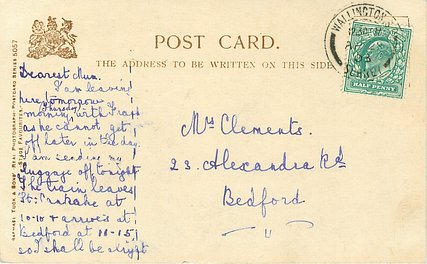 POST CARD.
THE ADDRESS TO BE WRITTEN ON THIS SIDE
RAPHAEL TUCK & SONS' REAL PHOTOGRAPH POSTCARD SERIES 5057
STAGE FAVOURITES
WALLINGTON
SURREY
HALF PENNY
Dearest Mum.
I am leaving
here tomorrow
Thursday
morning, with
as he cannot get
off later in the day.
I am sending my
luggage off tonight
The train leaves
St. Pancras at
10-10 & arrives at
Bedford at 11-15,
so I shall be alright
Mrs Clements.
23. Alexandra Rd
Bedford
"